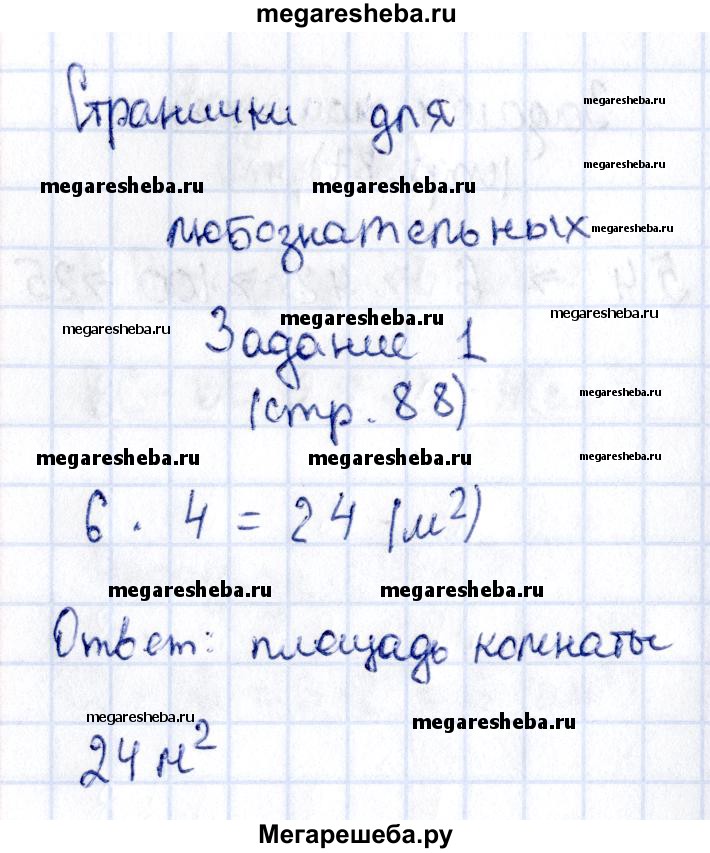 megaresheba.ru
Странички для
megaresheba.ru
megaresheba.ru
megaresheba.ru megaresheba.ru
любознательных
megaresheba.ru
megaresheba.ru megaresheba.ru megaresheba.ru
Задание 1
(стр. 88)
megaresheba.ru
megaresheba.ru megaresheba.ru megaresheba.ru
6 · 4 = 24 (м²)
megaresheba.ru megaresheba.ru
Ответ: площадь комнаты
megaresheba.ru megaresheba.ru
24 м²
Мегарешеба.ру